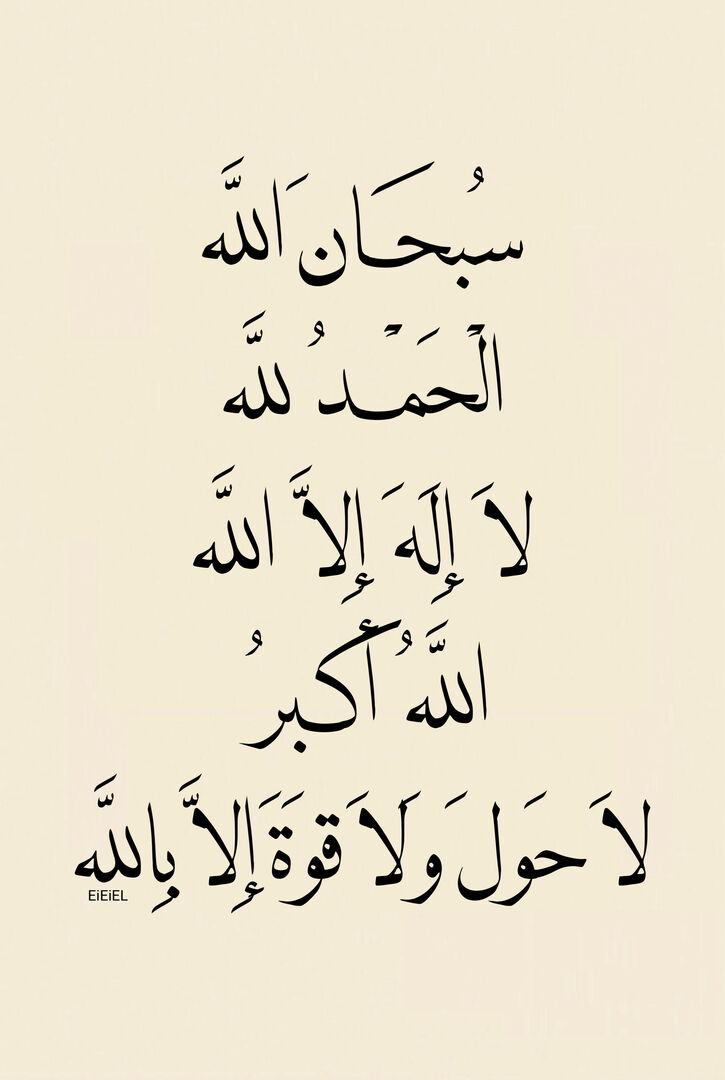 سُبحَان َاللَّه
الْحَمْدُ للَّه
لاَ إِلَهَ إِلاَّ اللَّه
اللَّهُ أَكبرُ
لاَ حَولَ وَلَا قوةَ إِلاَّ بِاللَّه
EiEiEL